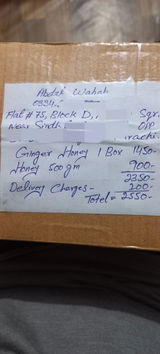 Abdul Wahab
0334
Flat # 75, Block D,, Sqr.
Near Sindh Opp
rachi
Ginger Honey 1 Box 1450-
Honey 500 gm 900-
2350-
Delivery Charges - 200-
Total = 2550-